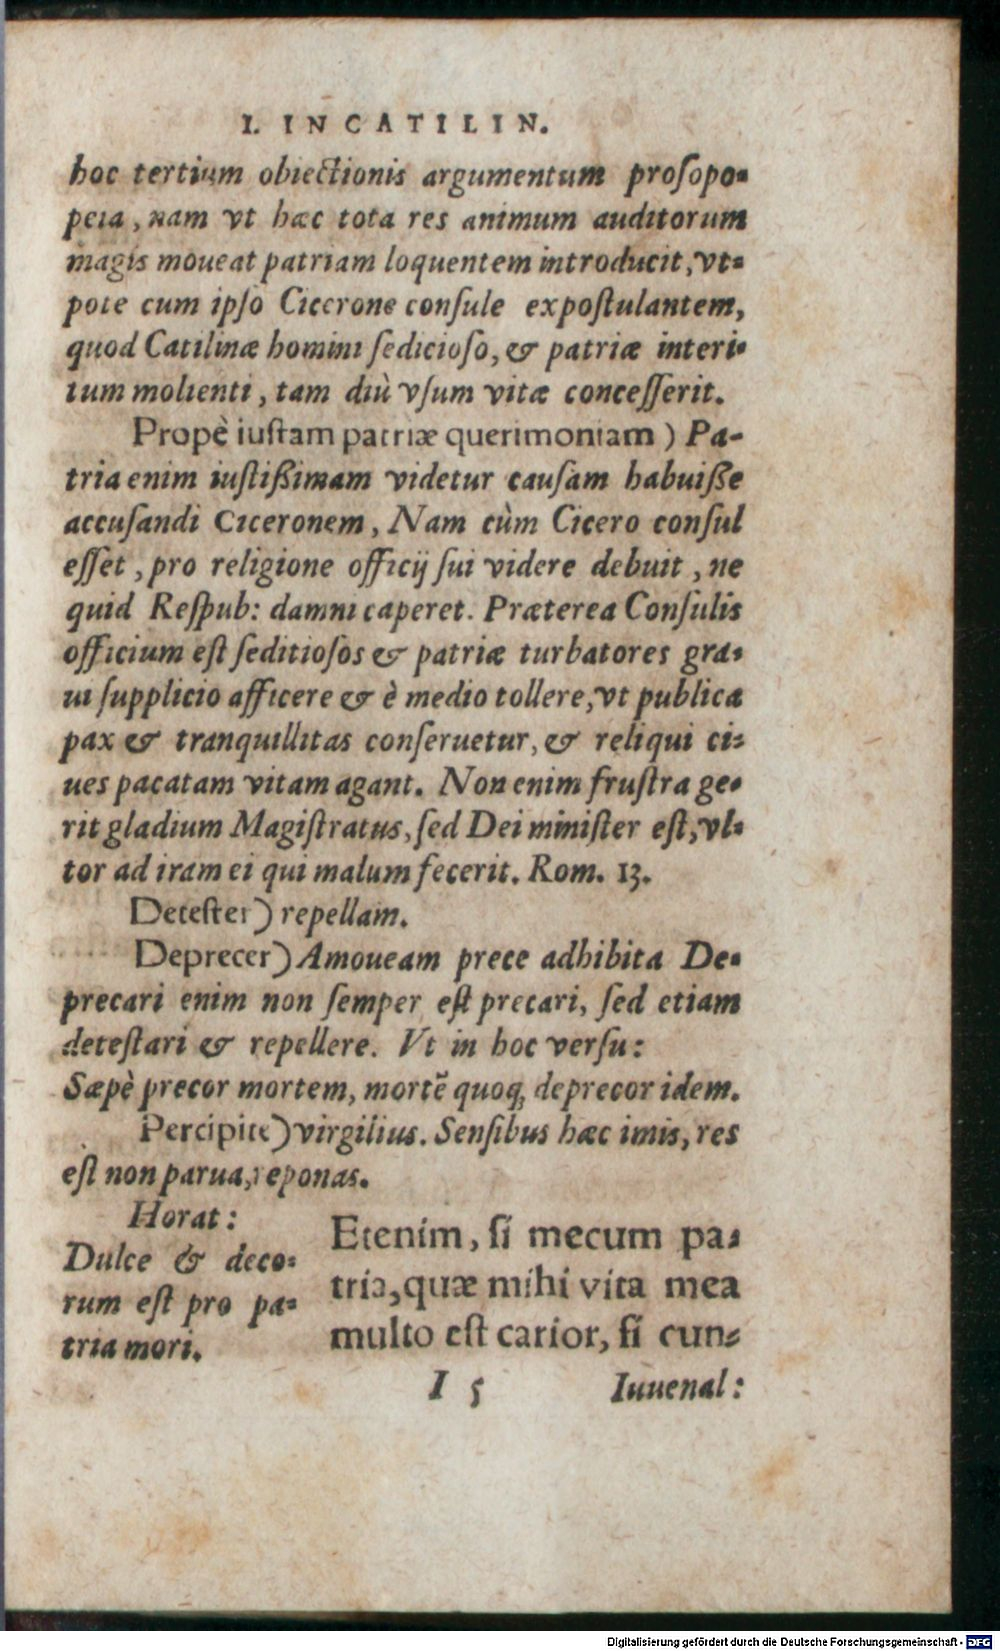 I. IN CATILIN.
hoc tertium obiectionis argumentum prosopo-
peia, nam vt hæc tota res animum auditorum
magis moueat patriam loquentem introducit, vt-
pote cum ipso Cicerone consule expostulantem,
quod Catilinæ homini sedicioso, & patriæ interi-
tum molienti, tam diù vsum vitæ concesserit.
Propè iustam patriæ querimoniam) Pa-
tria enim iustißimam videtur causam habuiße
accusandi Ciceronem, Nam cùm Cicero consul
esset, pro religione officij sui videre debuit, ne
quid Respub: damni caperet. Præterea Consulis
officium est seditiosos & patriæ turbatores gra-
ui supplicio afficere & è medio tollere, vt publica
pax & tranquillitas conseruetur, & reliqui ci-
ues pacatam vitam agant. Non enim frustra ge-
rit gladium Magistratus, sed Dei minister est, vl-
tor ad iram ei qui malum fecerit. Rom. 13.
Detester) repellam.
Deprecer) Amoueam prece adhibita De-
precari enim non semper est precari, sed etiam
detestari & repellere. Vt in hoc versu:
Sæpè precor mortem, mortē quoq; deprecor idem.
Percipite) virgilius. Sensibus hæc imis, res
est non parua, reponas.
Horat:
Dulce & deco-
rum est pro pa-
tria mori.
Etenim, si mecum pa-
tria, quæ mihi vita mea
multo est carior, si cun-
I 5 Iuuenal:
Digitalisierung gefördert durch die Deutsche Forschungsgemeinschaft - DFG